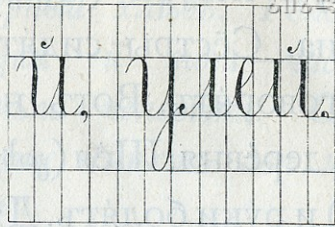 й, улей.